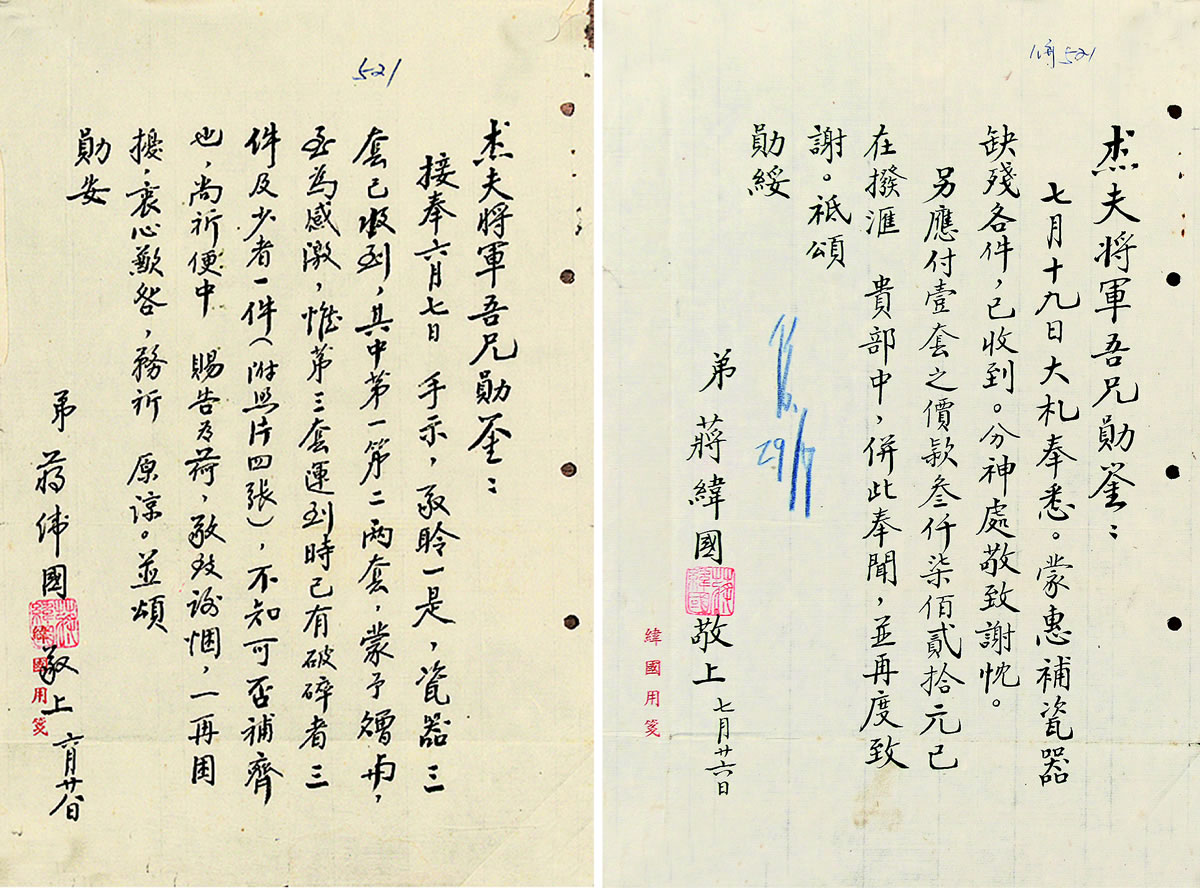 521
杰夫將軍吾兄勛鉴：
接奉六月七日 手示，敬聆一是，瓷器三
套已收到，其中第一第二兩套，蒙予贈与，
至為感激，惟第三套運到時已有破碎者三
件及少者一件（附照片四張），不知可否補齊
也，尚祈便中 賜告為荷，敬致謝悃，一再困
擾，衷心歉咎，務祈 原諒。並頌
勛安
弟 蔣緯國 敬上 六月廿八日
緯國用箋
521
杰夫將軍吾兄勛鉴：
七月十九日大札奉悉。蒙惠補瓷器
缺殘各件，已收到。分神處敬致謝忱。
另應付壹套之價款叁仟柒佰貳拾元已
在撥滙 貴部中，併此奉聞，並再度致
謝。祇頌
勛綏
弟 蔣緯國 敬上 七月廿六日
緯國用箋